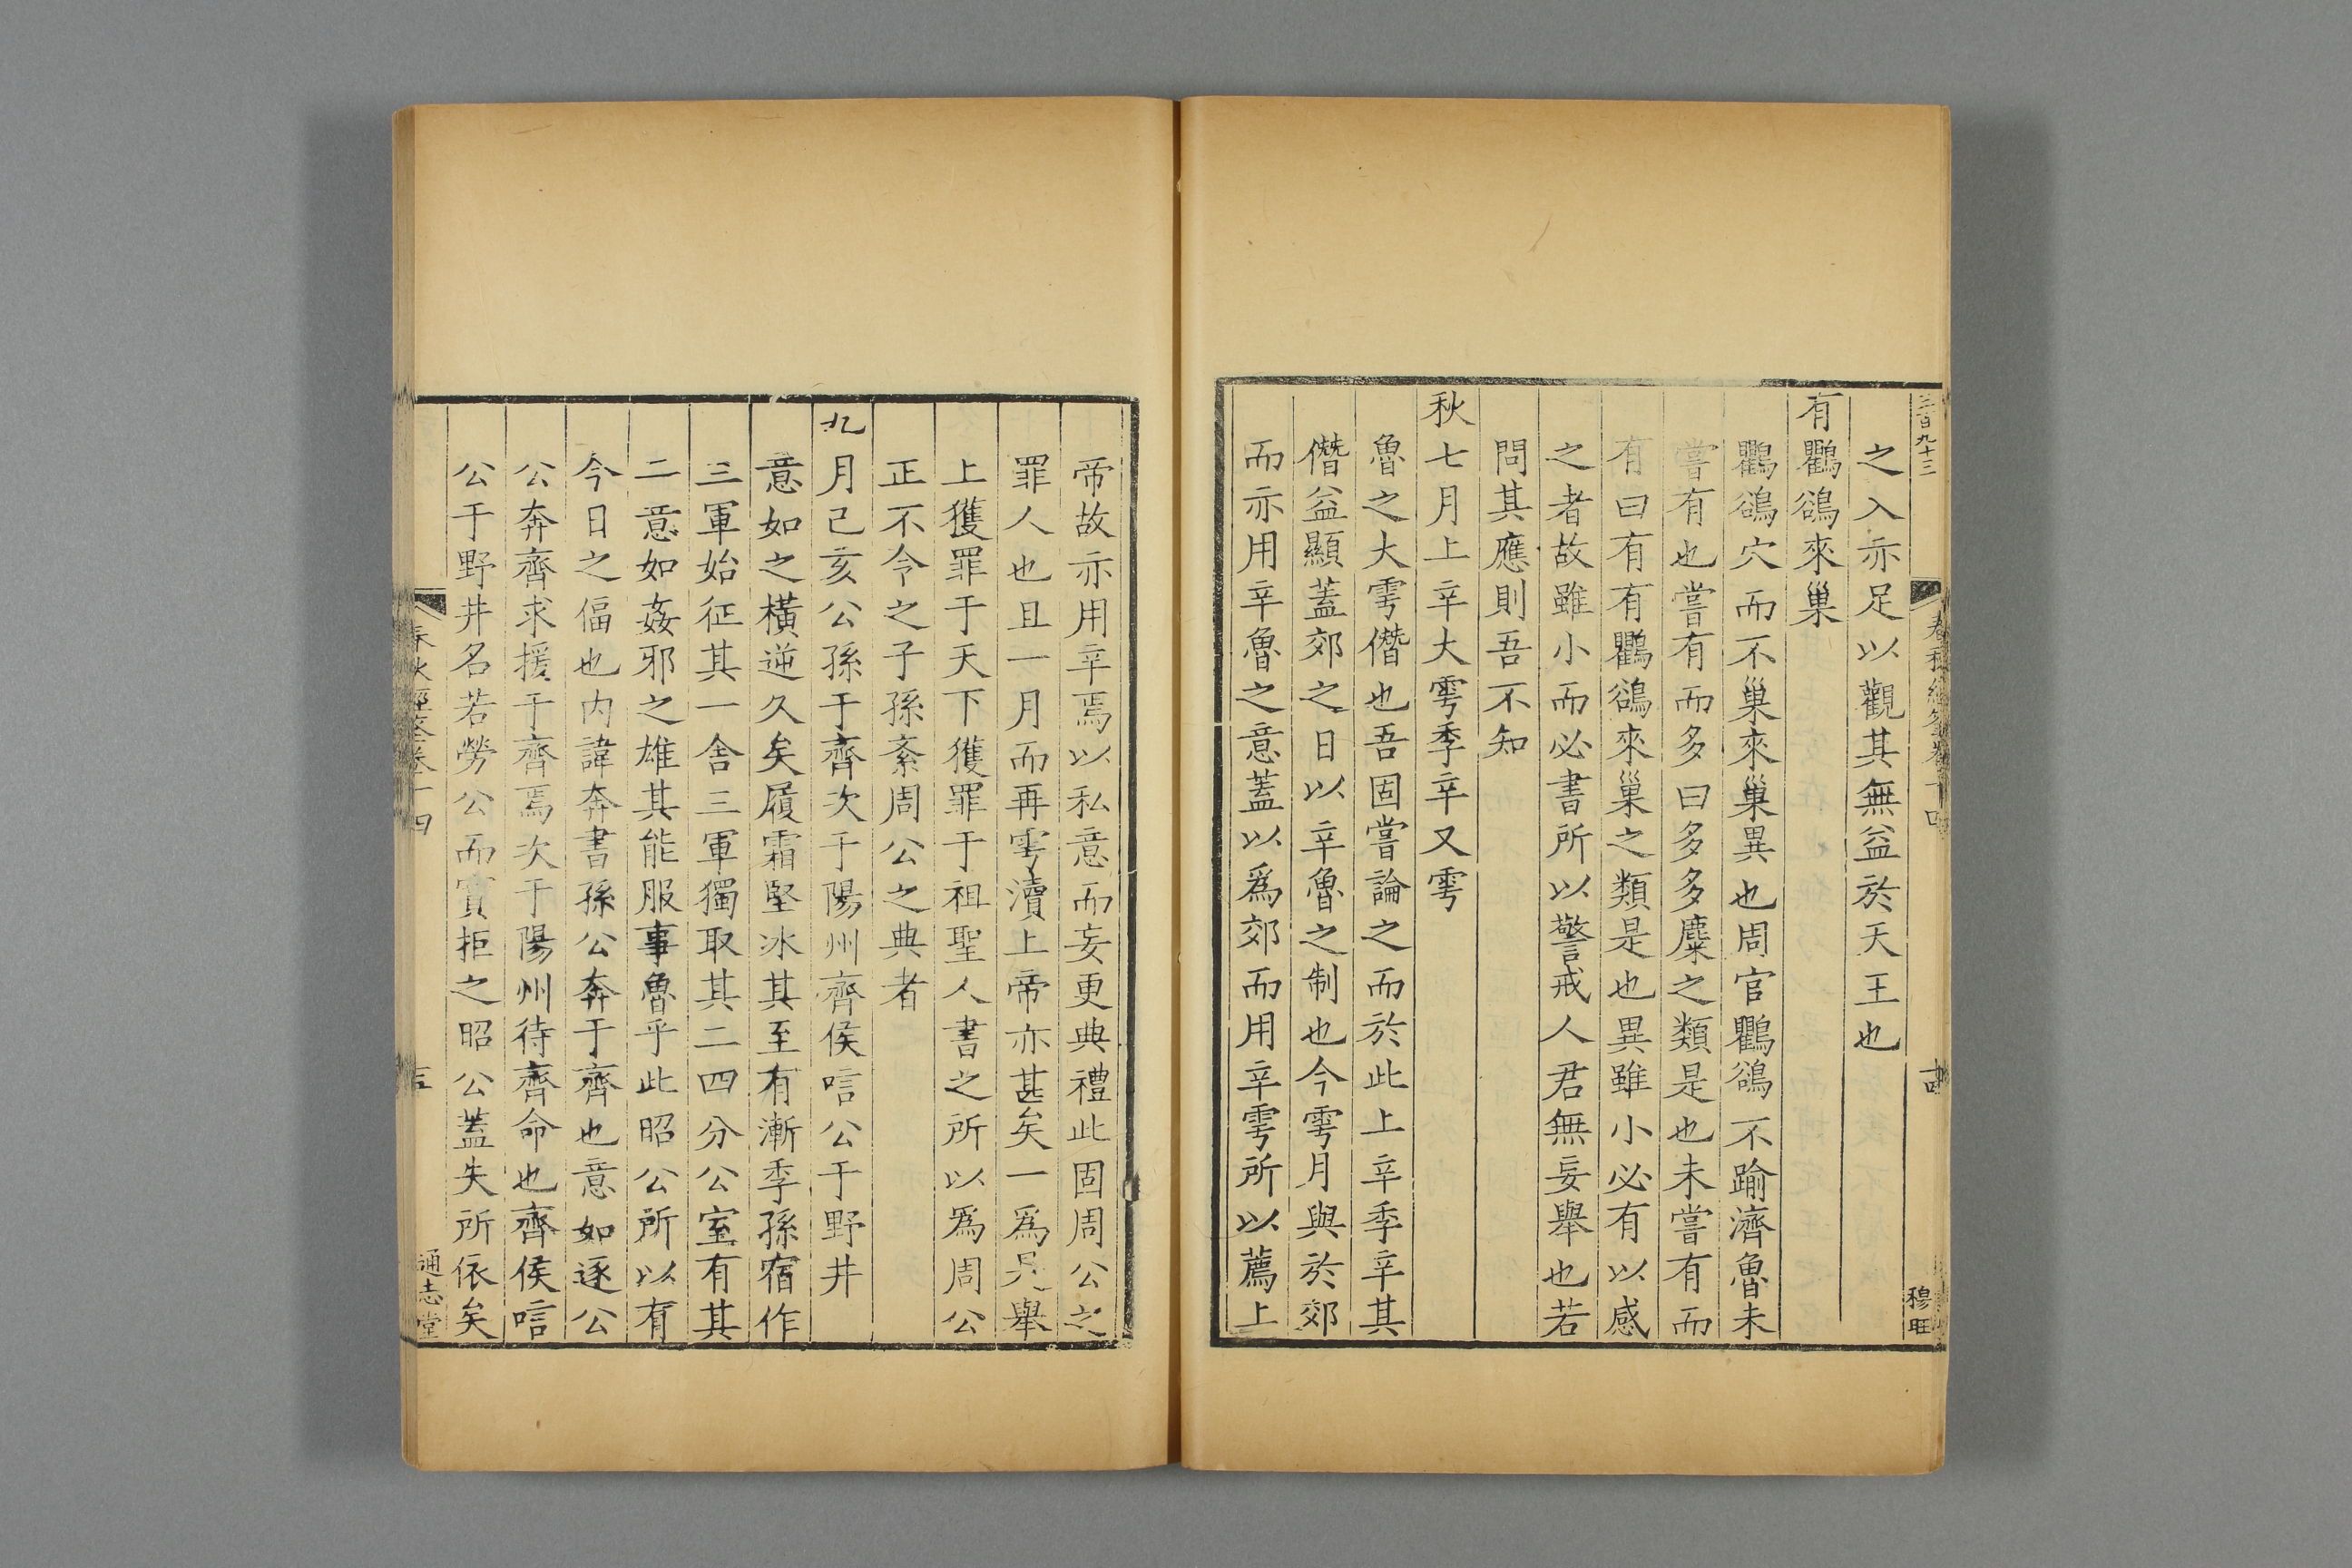 三百九十三
春秋經筌卷十四
十四
穆旺
之入亦足以觀其無益於天王也
有鸜鵒來巢
鸜鵒穴而不巢來巢異也周官鸜鵒不踰濟魯未
嘗有也嘗有而多曰多多麋之類是也未嘗有而
有曰有有鸜鵒來巢之類是也異雖小必有以感
之者故雖小而必書所以警戒人君無妄舉也若
問其應則吾不知
秋七月上辛大雩季辛又雩
魯之大雩僭也吾固嘗論之而於此上辛季辛其
僭益顯蓋郊之日以辛魯之制也今雩月與於郊
而亦用辛魯之意蓋以爲郊而用辛雩所以薦上
帝故亦用辛焉以私意而妄更典禮此固周公之
罪人也且一月而再雩瀆上帝亦甚矣一爲是舉
上獲罪于天下獲罪于祖聖人書之所以爲周公
正不令之子孫紊周公之典者
九月己亥公孫于齊次于陽州齊侯唁公于野井
意如之橫逆久矣履霜堅冰其至有漸季孫宿作
三軍始征其一舍三軍獨取其二四分公室有其
二意如姦邪之雄其能服事魯乎此昭公所以有
今日之偪也内諱奔書孫公奔于齊也意如逐公
公奔齊求援于齊焉次于陽州待齊命也齊侯唁
公于野井名若勞公而實拒之昭公蓋失所依矣
春秋經筌卷十四
十五
通志堂